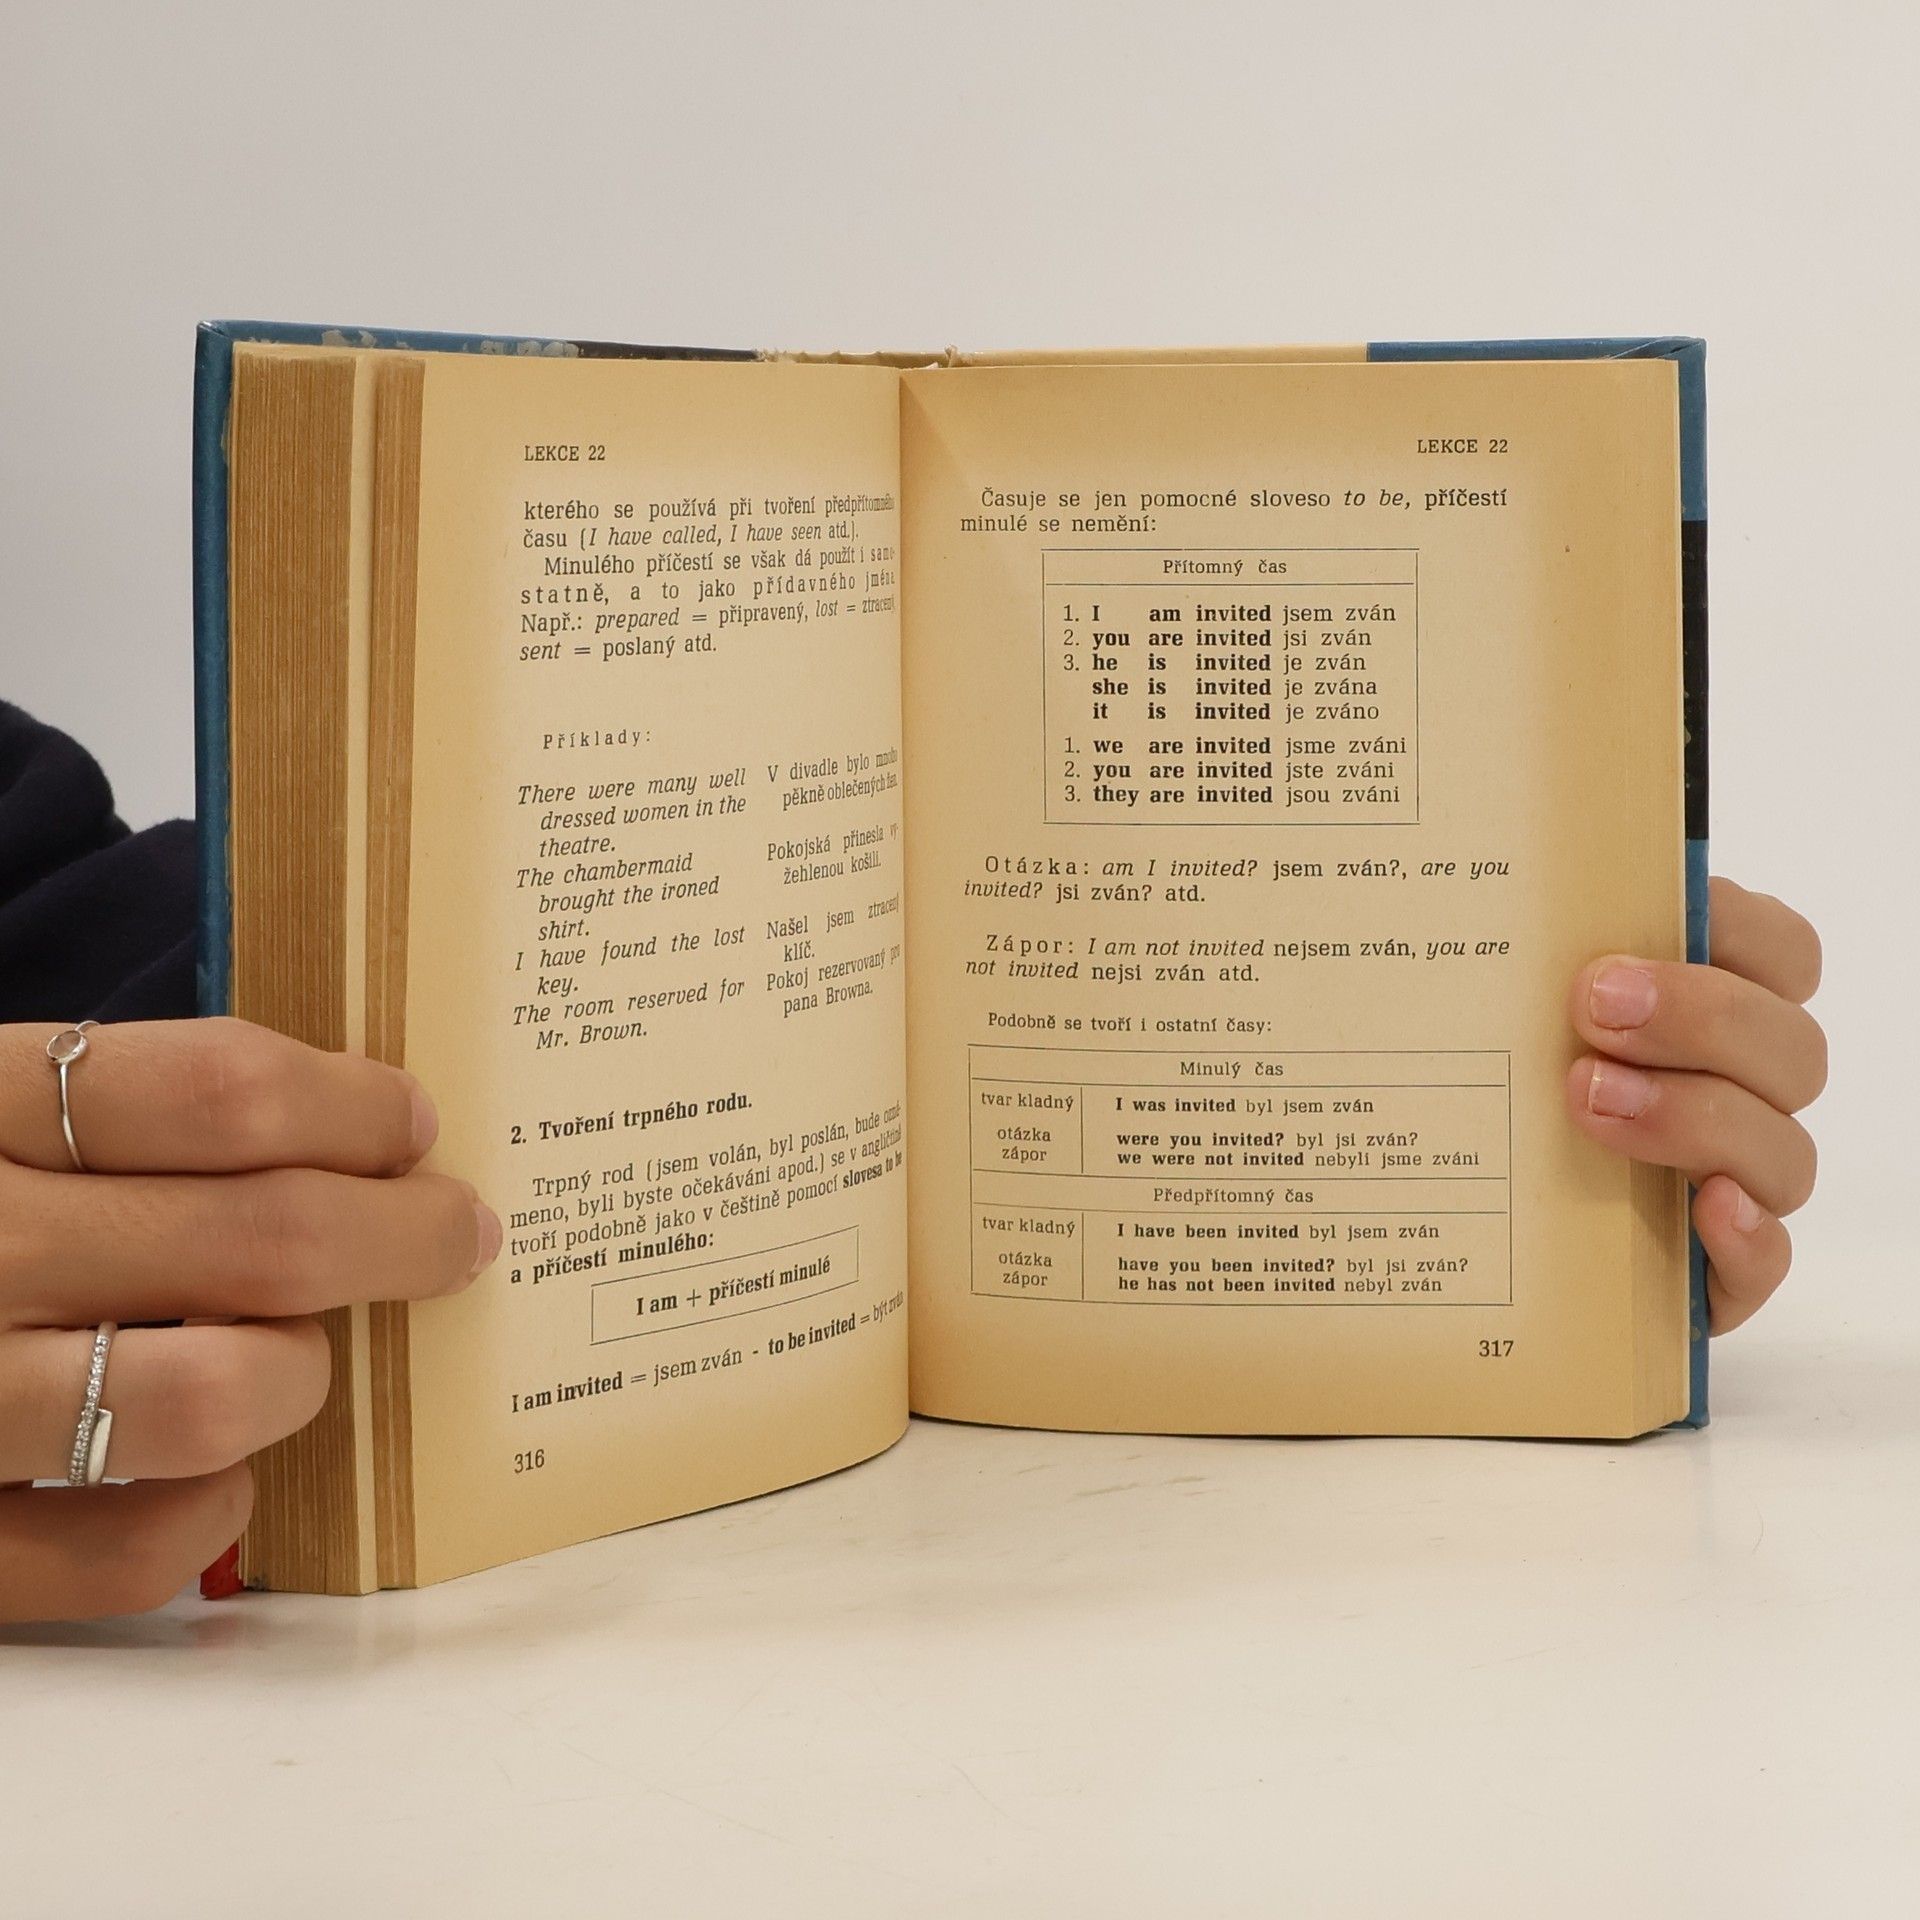 LEKCE 22
kterého se používá při tvoření předpřítomného
času (I have called, I have seen atd.).
Minulého příčestí se však dá použít i samo-
statně, a to jako přídavného jména.
Např.: prepared = připravený, lost = ztracený,
sent = poslaný atd.
Příklady:
There were many well
dressed women in the
theatre.
V divadle bylo mnoho
pěkně oblečených žen.
The chambermaid
brought the ironed
shirt.
Pokojská přinesla vy-
žehlenou košili.
I have found the lost
key.
Našel jsem ztracený
klíč.
The room reserved for
Mr. Brown.
Pokoj rezervovaný pro
pana Browna.
2. Tvoření trpného rodu.
Trpný rod (jsem volán, byl poslán, bude ozná-
meno, byli byste očekáváni apod.) se v angličtině
tvoří podobně jako v češtině pomocí slovesa to be
a příčestí minulého:
I am + příčestí minulé
I am invited = jsem zván - to be invited = být zván
316
LEKCE 22
Časuje se jen pomocné sloveso to be, příčestí
minulé se nemění:
Přítomný čas
1. I am invited jsem zván
2. you are invited jsi zván
3. he is invited je zván
she is invited je zvána
it is invited je zváno
1. we are invited jsme zváni
2. you are invited jste zváni
3. they are invited jsou zváni
Otázka: am I invited? jsem zván?, are you
invited? jsi zván? atd.
Zápor: I am not invited nejsem zván, you are
not invited nejsi zván atd.
Podobně se tvoří i ostatní časy:
Minulý čas
tvar kladný I was invited byl jsem zván
otázka were you invited? byl jsi zván?
zápor we were not invited nebyli jsme zváni
Předpřítomný čas
tvar kladný I have been invited byl jsem zván
otázka have you been invited? byl jsi zván?
zápor he has not been invited nebyl zván
317